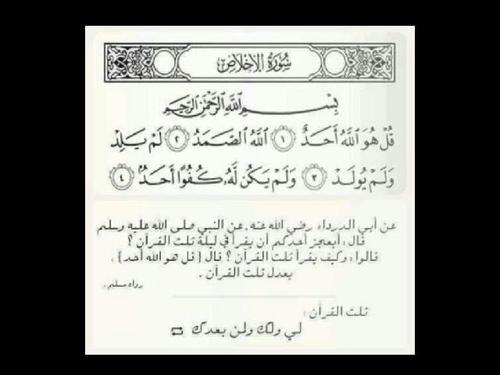 سُورَةُ الإِخْلَاصِ
بِسْمِ اللَّهِ الرَّحْمَٰنِ الرَّحِيمِ
قُلْ هُوَ اللَّهُ أَحَدٌ ١ اللَّهُ الصَّمَدُ ٢ لَمْ يَلِدْ
وَلَمْ يُولَدْ ٣ وَلَمْ يَكُن لَّهُ كُفُوًا أَحَدٌ ٤
عن أبي الدرداء رضي الله عنه، عن النبي صلى الله عليه وسلم
قال : أيعجز أحدكم أن يقرأ في ليلة ثلث القرآن ؟
قالوا : وكيف يقرأ ثلث القرآن ؟ قال { قل هو الله أحد } ،
يعدل ثلث القرآن .
رواه مسلم .
ثلث القرآن :
لي ولك ولن بعدك